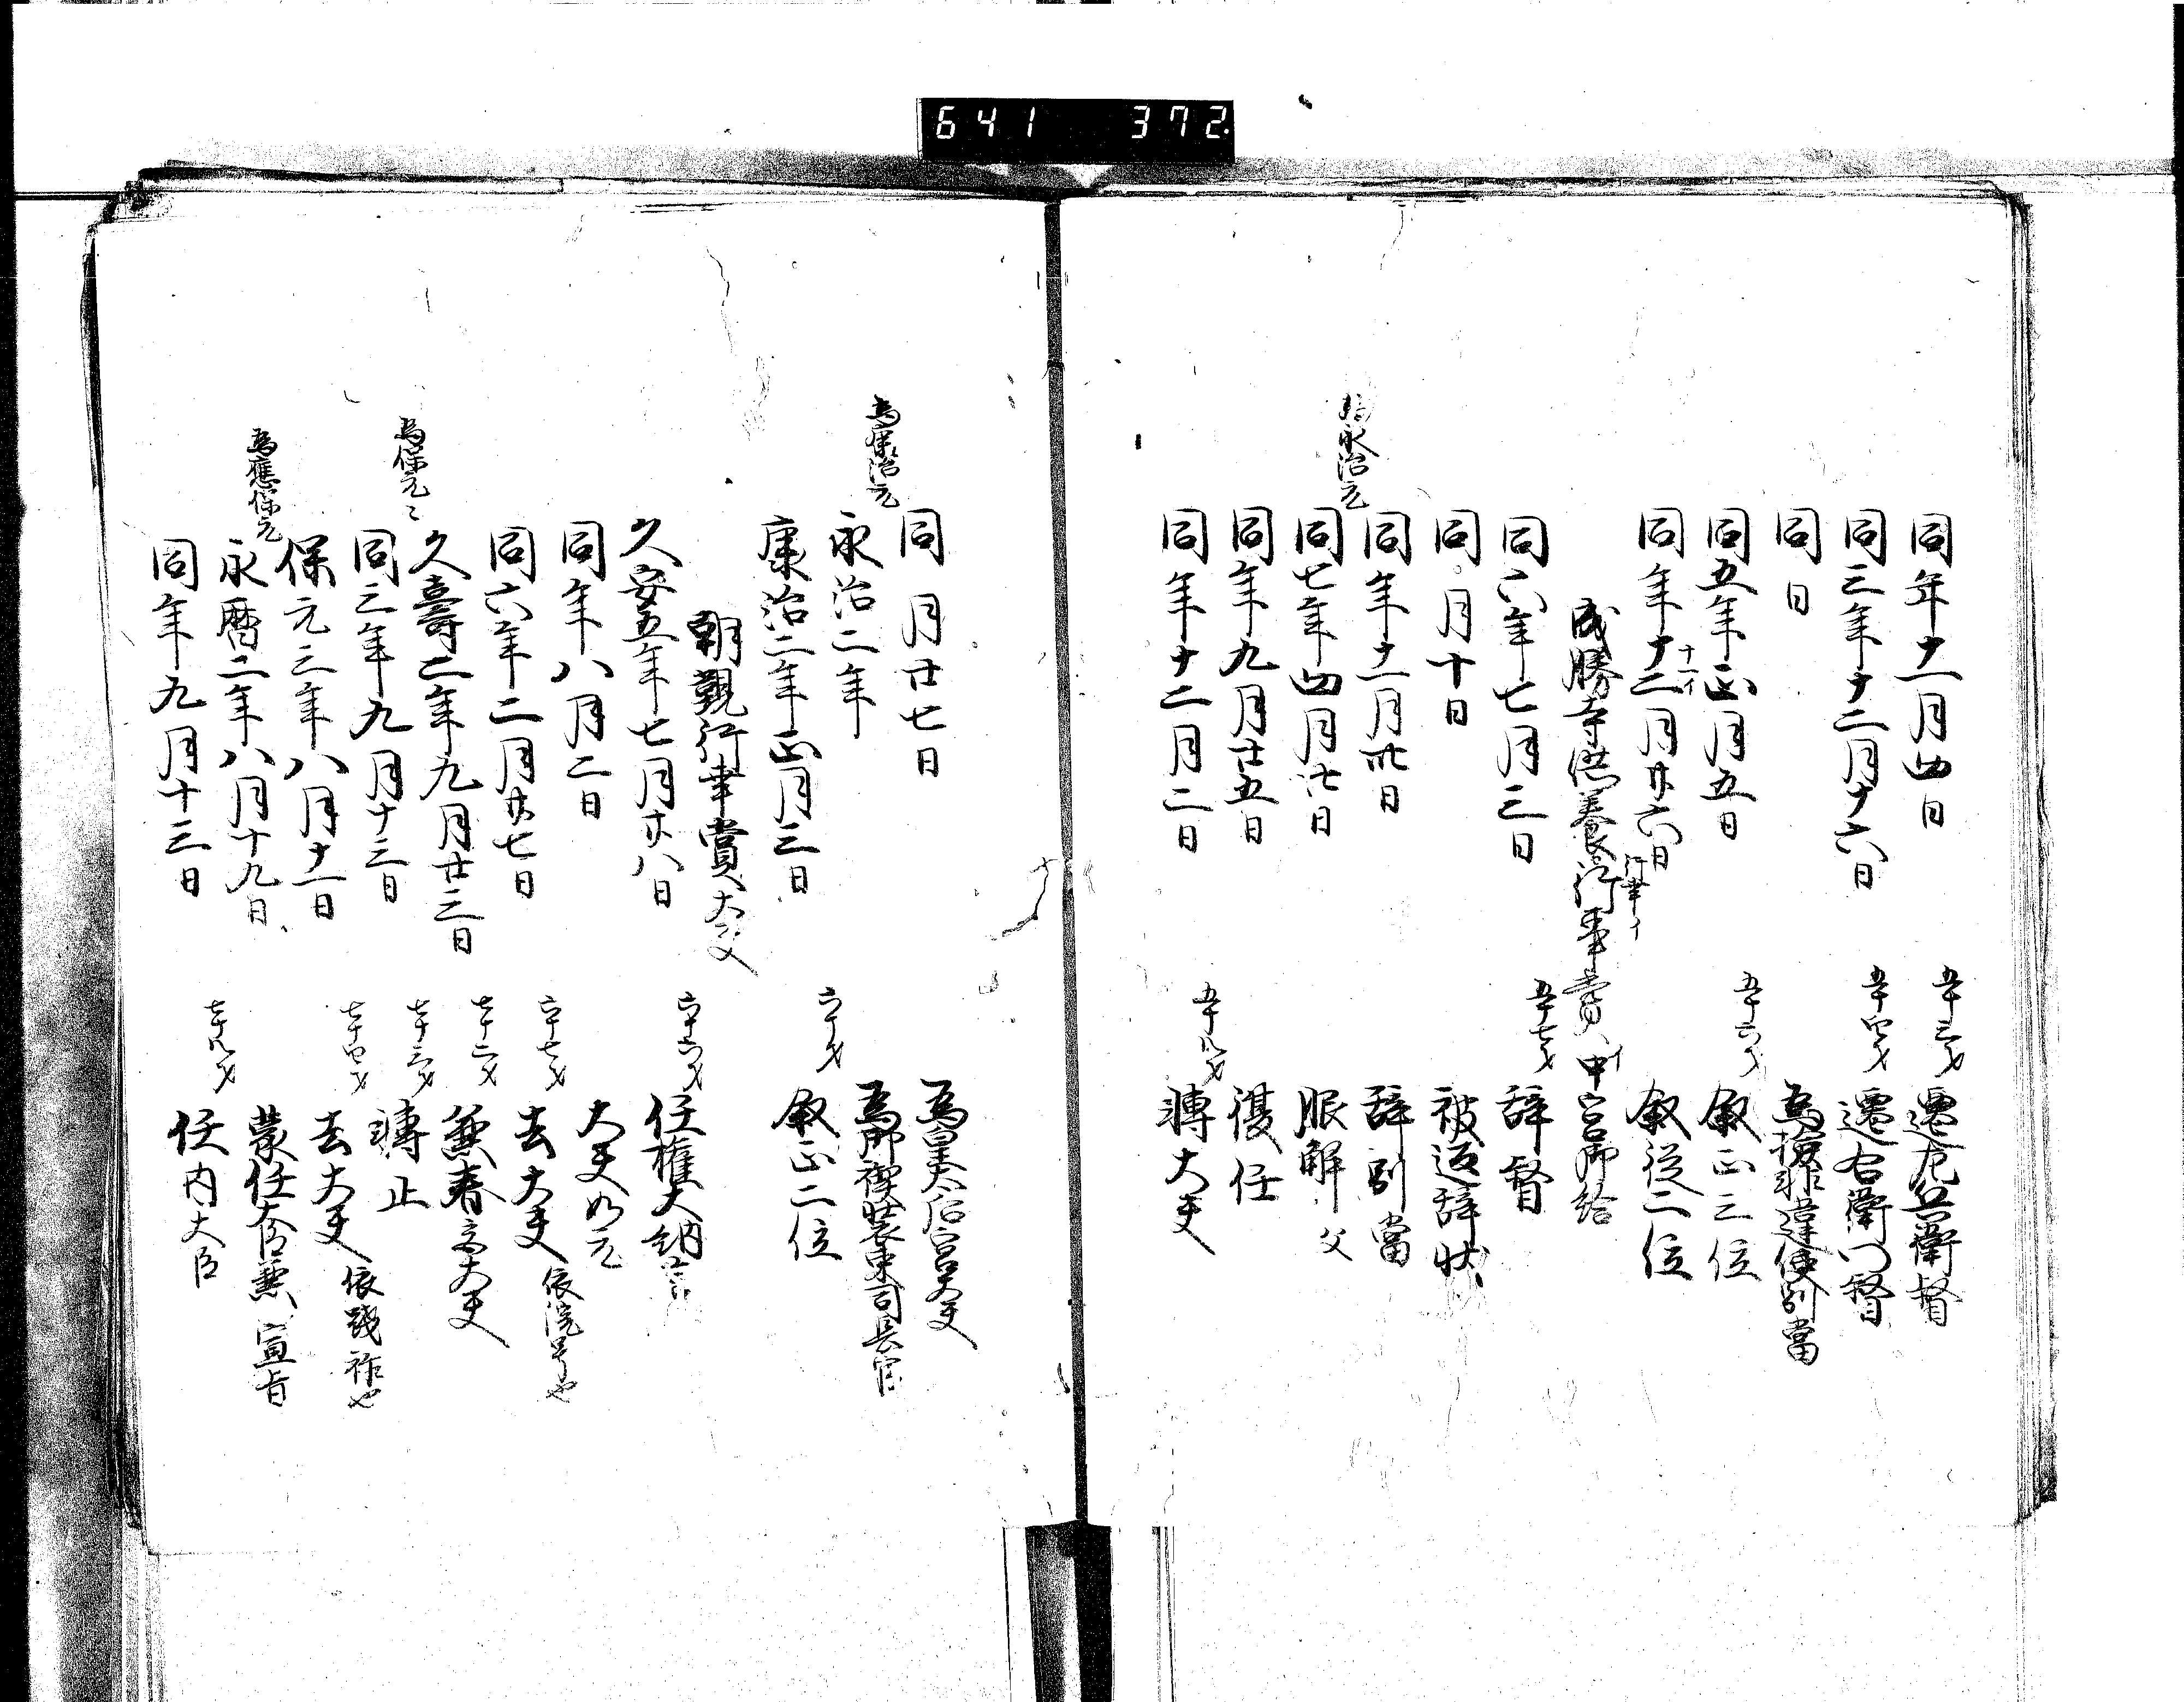 641 372
同年十一月四日 五十三才 遷左兵衛督
同三年十二月十六日 五十四才 遷右衛門督
同日 為検非違使別當
同五年正月五日 五十六才 叙正三位
同年十二月廿六日 叙従二位
十一イ
成勝寺供養行事賞 中宮御給
行幸イ
同六年七月三日 五十七才 辞督
同月十日 被返辞状
為永治元
同年十一月卅日 辞別當
同七年四月廿日 服解父
同年九月廿五日 復任
同年十二月二日 五十八才 轉大夫
同月廿七日 為皇太后宮大夫
為康治元
永治二年 為御禊装束司長官
康治二年正月三日 六十才 叙正二位
朝覲行幸賞大夫
久安五年七月廿八日 六十六才 任権大納言
同年八月二日 大夫如元
同六年二月廿七日 六十七才 去大夫 依院号也
久壽二年九月廿三日 七十二才 兼春宮大夫
為保元々
同三年九月十三日 七十三才 轉止
保元三年八月十一日 七十四才 去大夫 依践祚也
為應保元
永暦二年八月十九日 蒙任大臣兼宣旨
同年九月十三日 七十八才 任内大臣